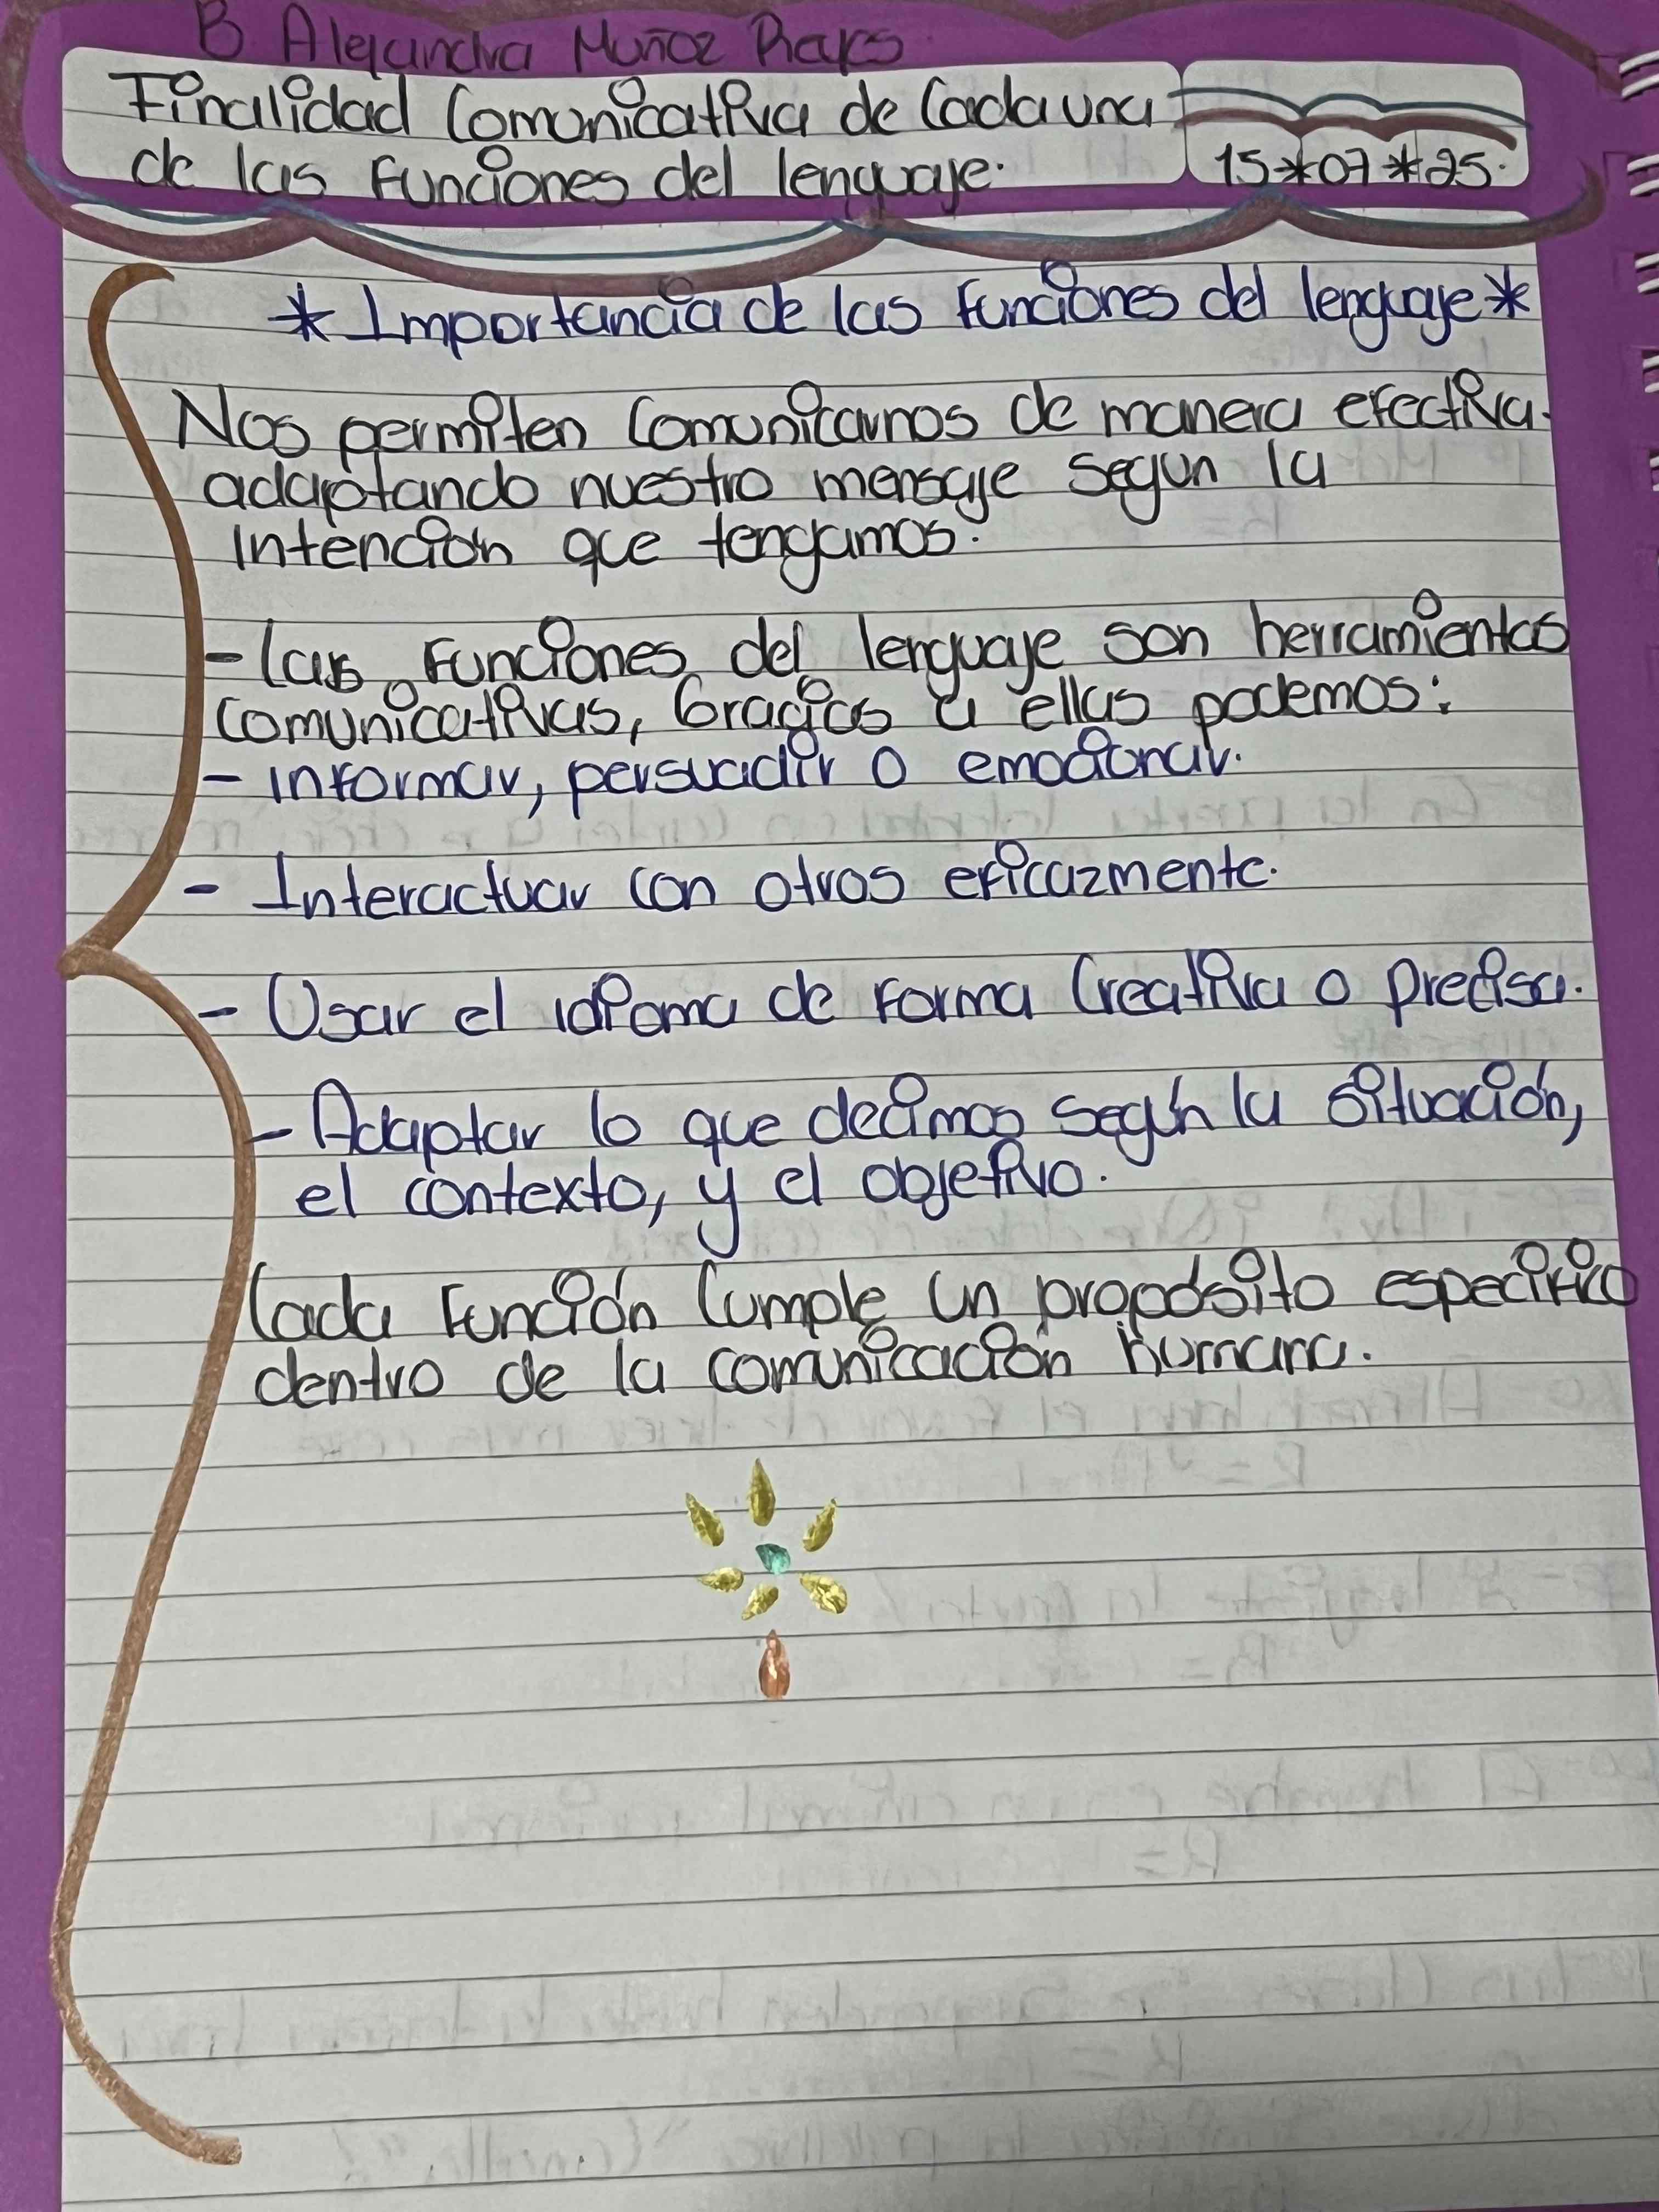 B. Alejandra Muñoz
Finalidad Comunicativa de Cada una
de las Funciones del lenguaje.
15*07*25.
*Importancia de las Funciones del lenguaje*
Nos permiten Comunicarnos de manera efectiva
adaptando nuestro mensaje segun la
intención que tengamos.
- Las Funciones del lenguaje son herramientas
comunicativas, Gracias a ellas podemos:
- informar, persuadir o emocionar.
- Interactuar con otros eficazmente.
- Usar el idioma de Forma Creativa o precisa.
- Adaptar lo que decimos según la situación,
el contexto, y el objetivo.
Cada Función Cumple un propósito especifico
dentro de la comunicación humana.